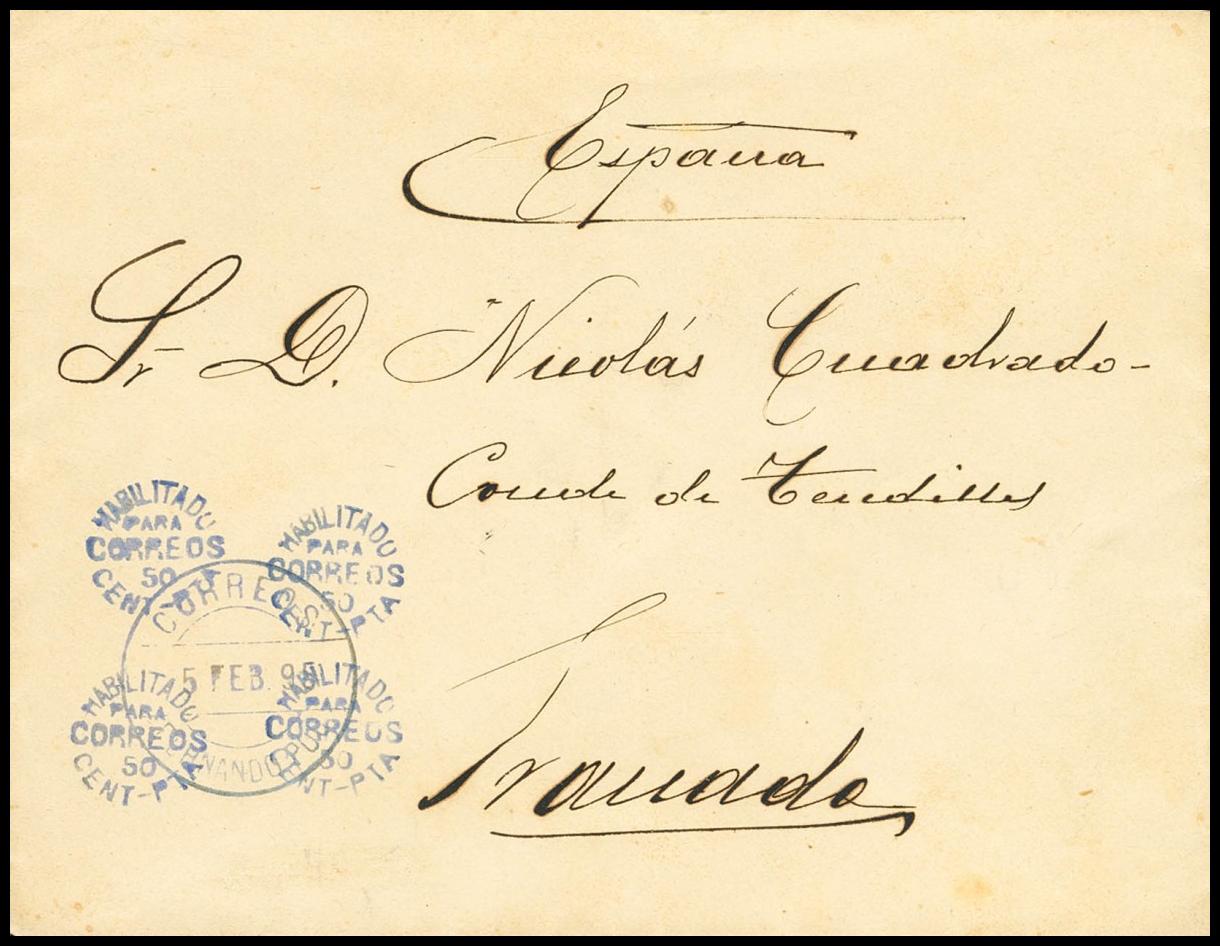 España
Sr D. Nicolás Cuadrado-
Conde de Tendillas
Granada
HABILITADO
PARA
CORREOS
50
CENT-PTA
HABILITADO
PARA
CORREOS
50
CENT-PTA
CORREOS
5 FEB. 95
FERNANDO POO
HABILITADO
PARA
CORREOS
50
CENT-PTA
HABILITADO
PARA
CORREOS
50
CENT-PTA